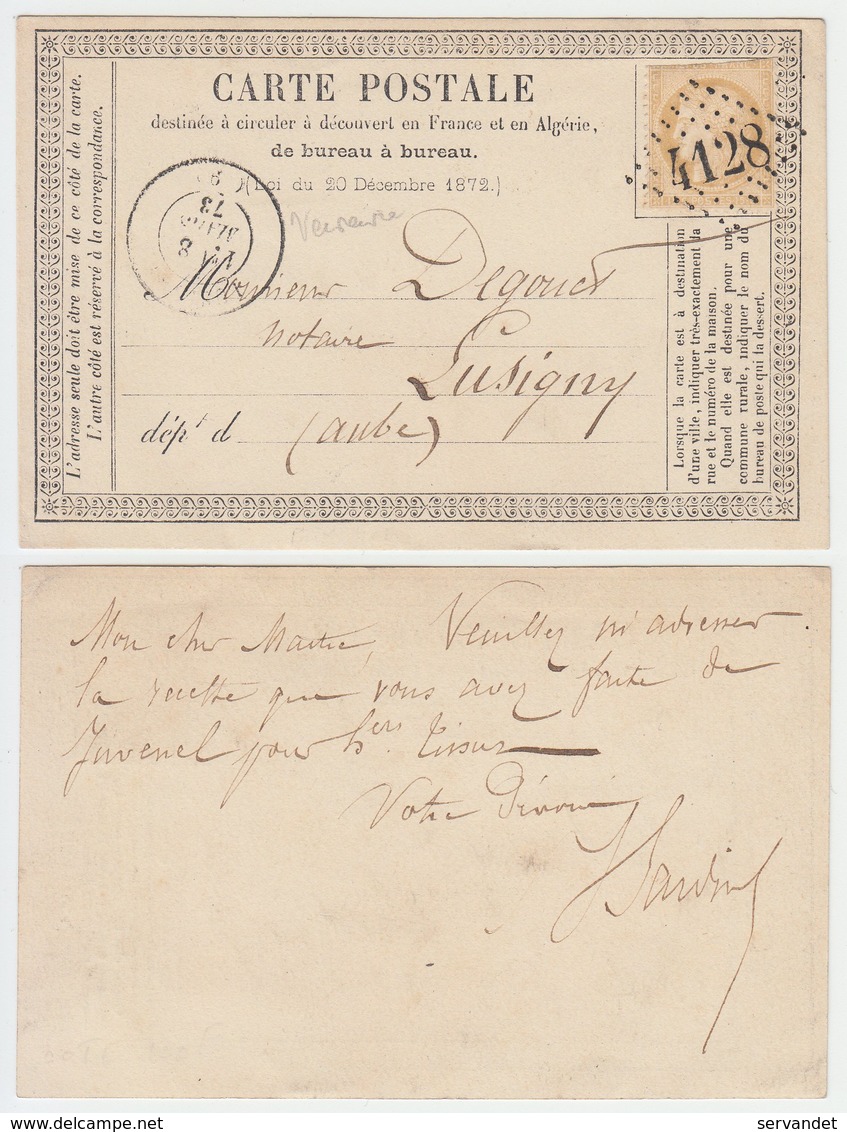 CARTE POSTALE
destinée à circuler à découvert en France et en Algérie,
de bureau à bureau.
(Loi du 20 Décembre 1872.)
4128
73
8
Monsieur Degouet
notaire
Lusigny
dépt d (aube)
L'adresse seule doit être mise de ce côté de la carte.
L'autre côté est réservé à la correspondance.
Lorsque la carte est à destination
d'une ville, indiquer très-exactement la
rue et le numéro de la maison.
Quand elle est destinée pour une
commune rurale, indiquer le nom du
bureau de poste qui la dessert.
Mon cher Maître, Veuillez m'adresser
la recette que vous avez faite de
Juvenel pour hers
Votre Dévoué
delcampe.net
servandet